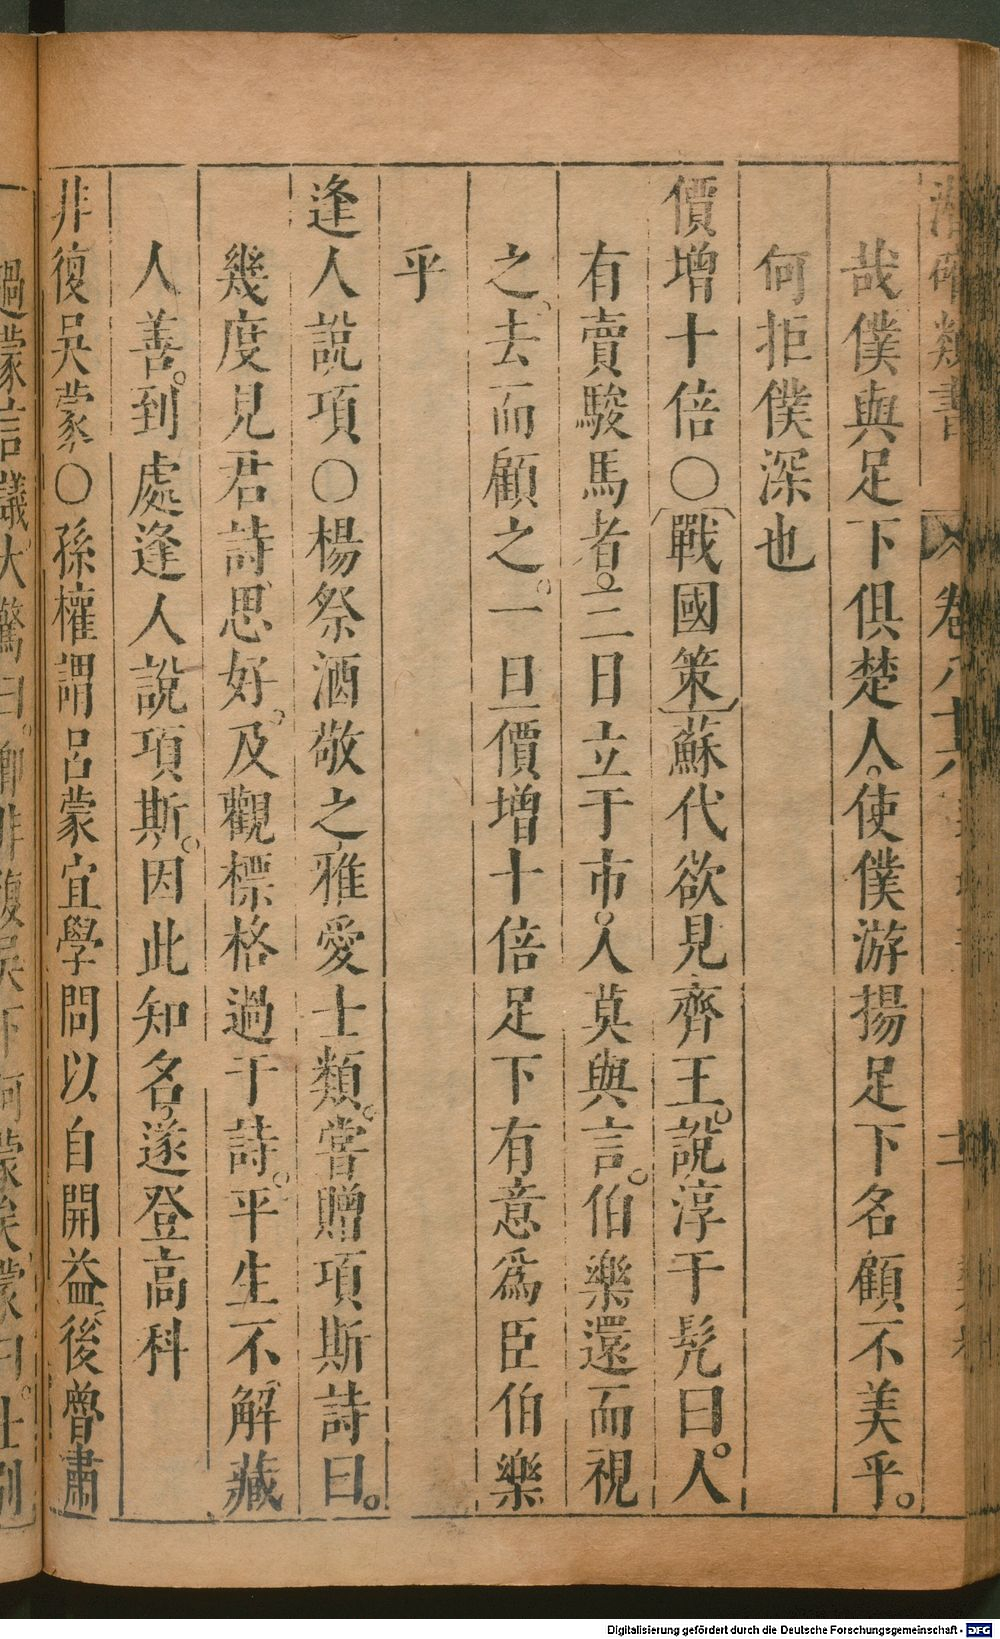 潛確類書 卷八十八
哉僕與足下俱楚人。使僕游揚足下名顧不美乎。
何拒僕深也
價增十倍○戰國策蘇代欲見齊王。說淳于髡曰。人
有賣駿馬者。三日立于市。人莫與言。伯樂還而視
之。去而顧之。一旦價增十倍足下有意爲臣伯樂
乎
逢人說項○楊祭酒敬之雅愛士類。嘗贈項斯詩曰。
幾度見君詩思好。及觀標格過于詩。平生不解藏
人善。到處逢人說項斯。因此知名。遂登高科
非復吳蒙○孫權謂呂蒙宜學問以自開益。後魯肅
過蒙言議。大驚曰。卿非復吳下阿蒙矣。蒙曰。士別
Digitalisierung gefördert durch die Deutsche Forschungsgemeinschaft - DFG